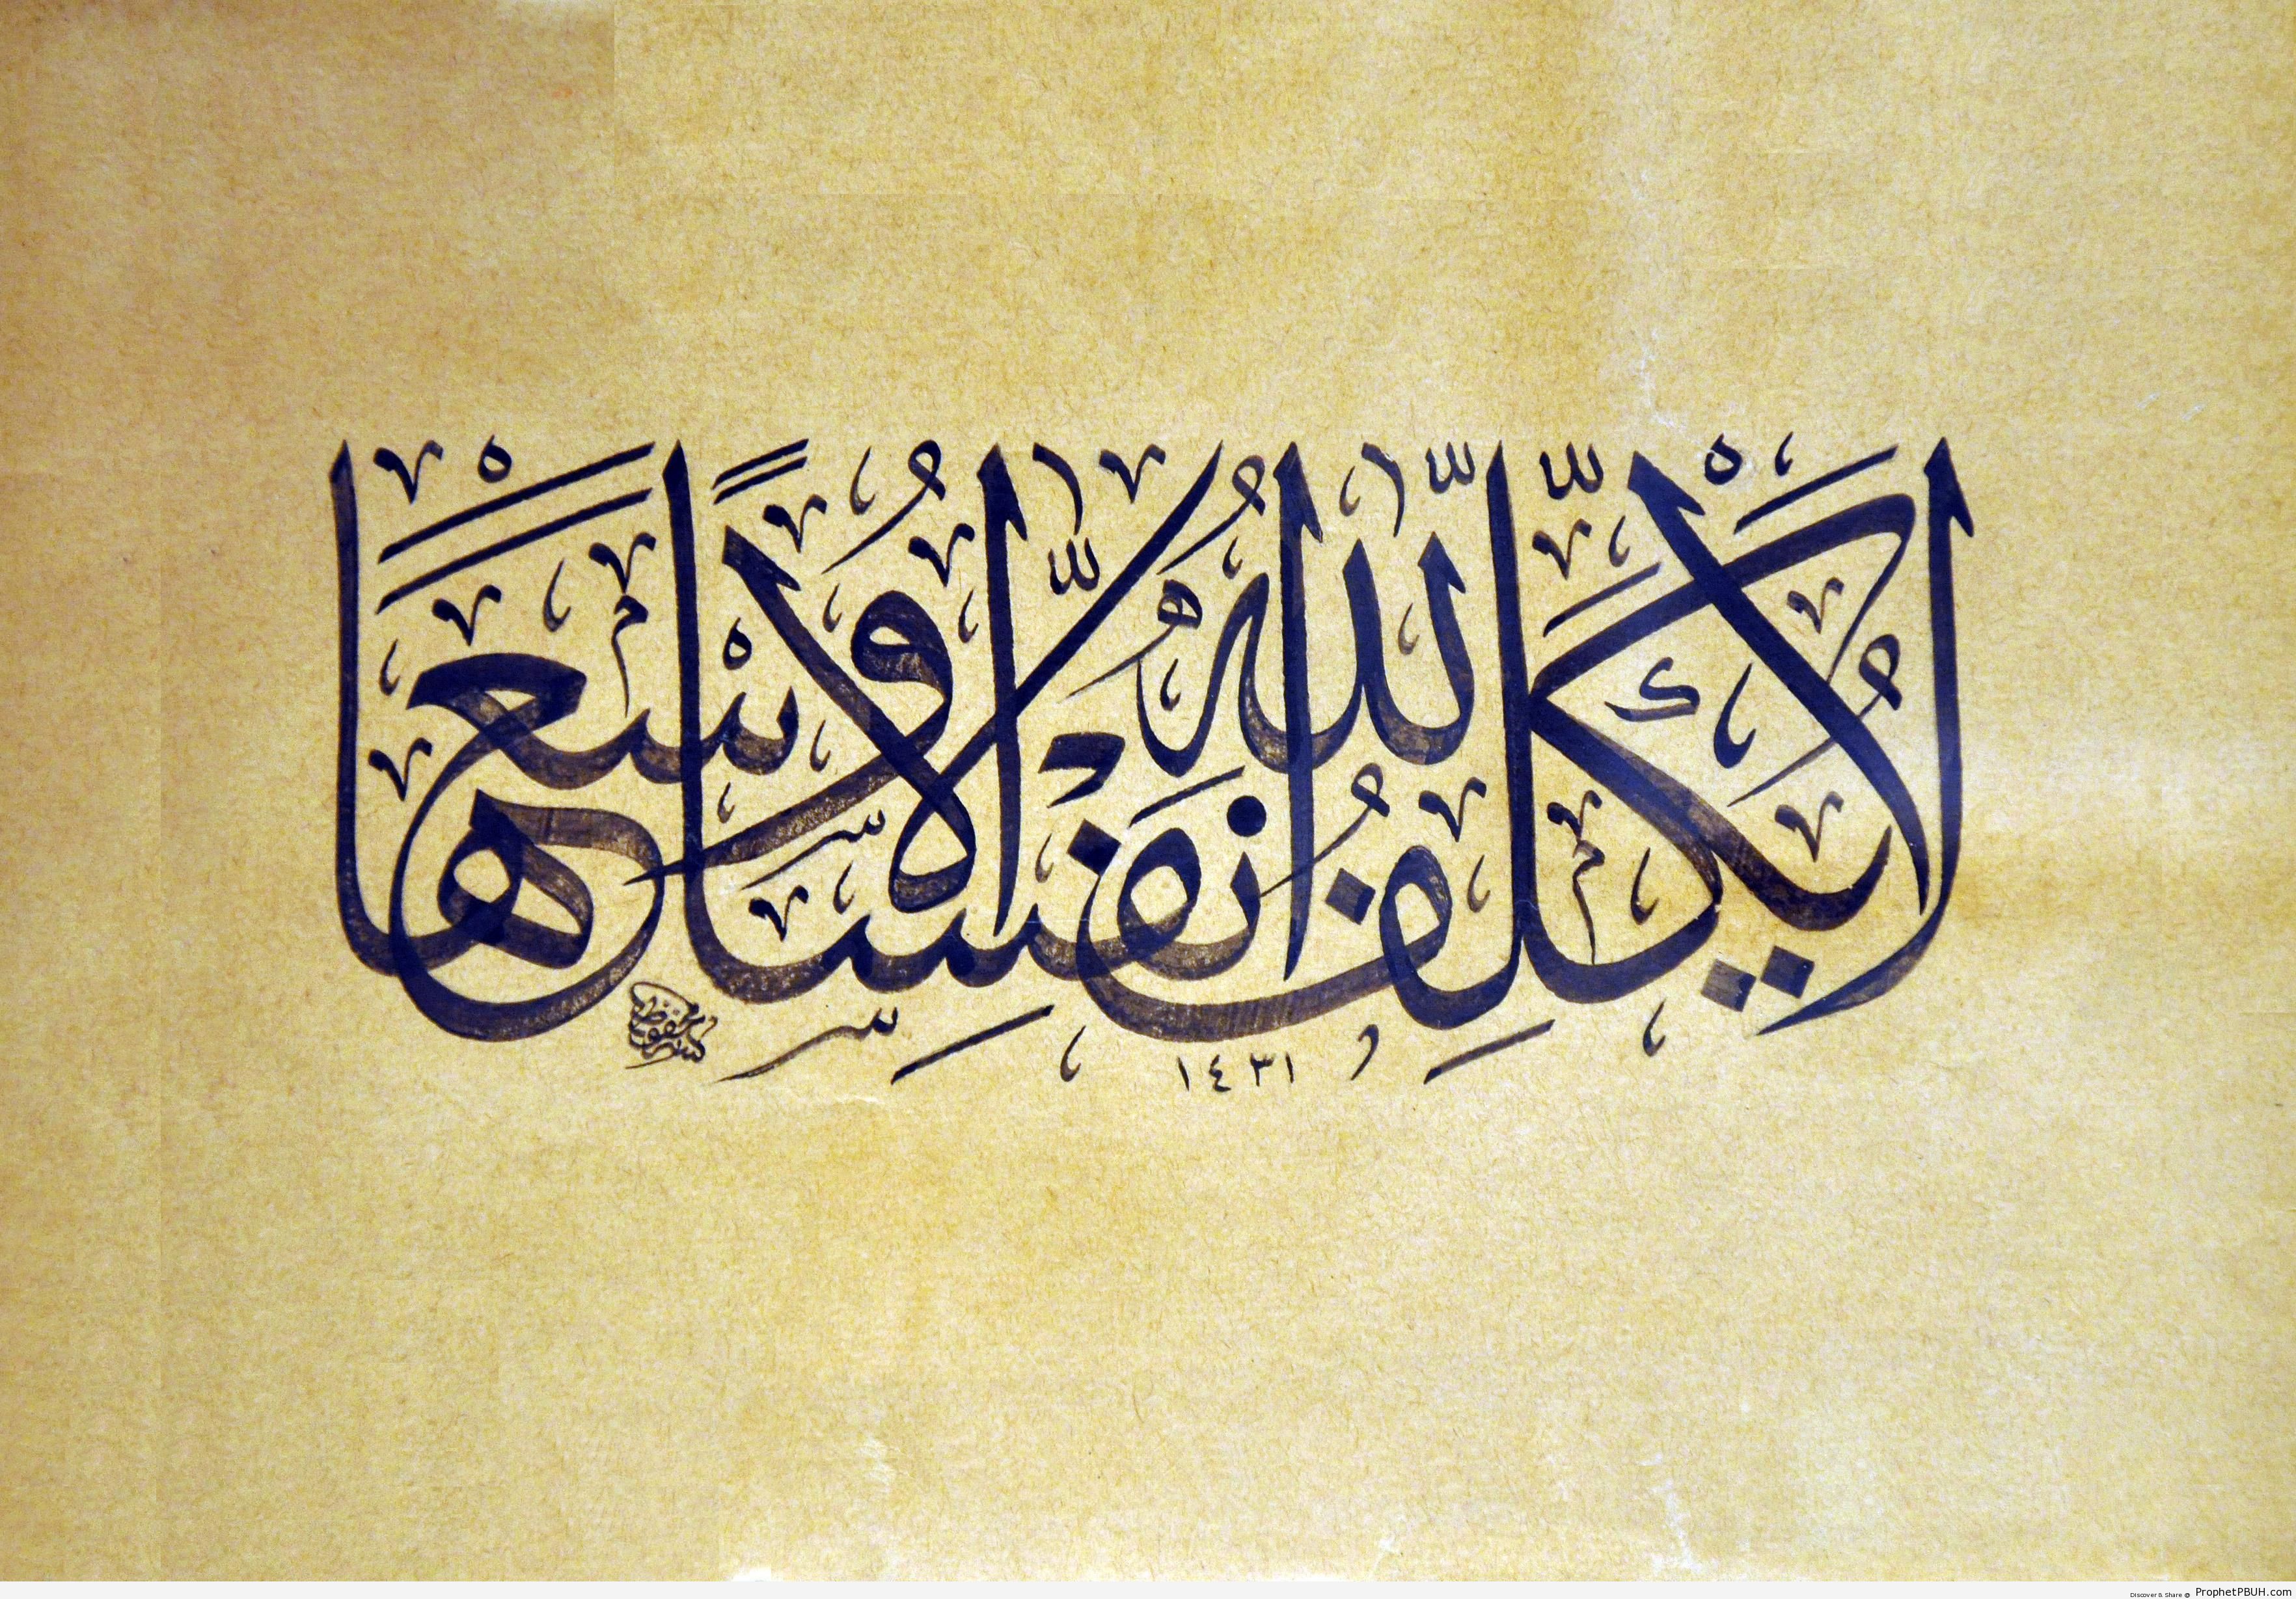 لَا يُكَلِّفُ اللَّهُ نَفْسًا إِلَّا وُسْعَهَا
١٤٣١
Discover & Share @ ProphetPBUH.com